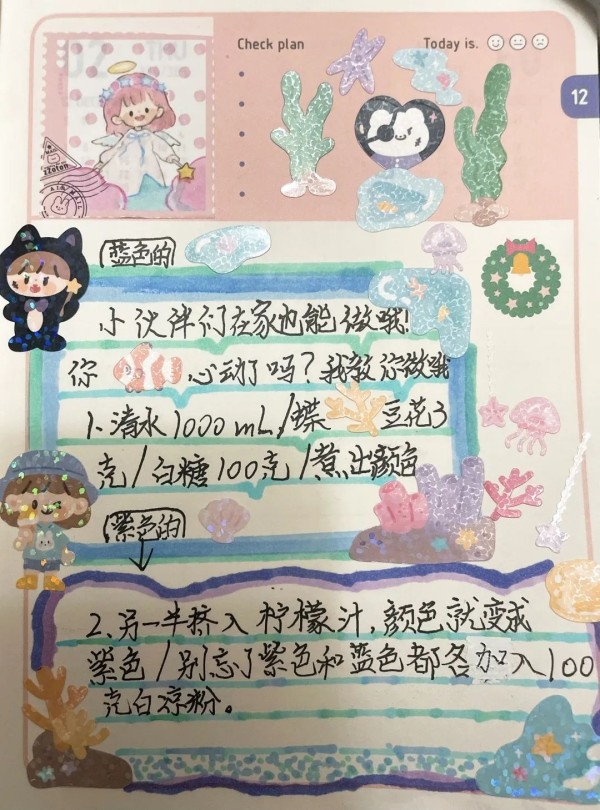 Check plan
Today is.
12
zZoton
AIR MAIL
蓝色的
小伙伴们在家也能做哦！
你 心动了吗？我教你做哦
1、清水1000mL/蝶 豆花3
克/白糖100克/煮出颜色
紫色的
2、另一半挤入柠檬汁，颜色就变成
紫色/别忘了紫色和蓝色都各加入100
克白凉粉。